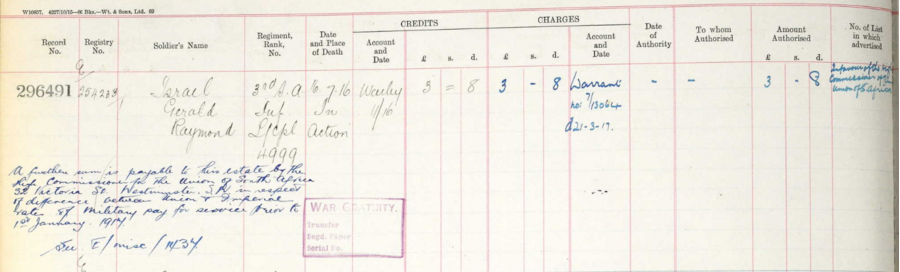 W10857. 4227/10/15—M Bks.—Wt. & Sons, Ltd. 89
CREDITS CHARGES
Record No. Registry No. Soldier's Name Regiment, Rank, No. Date and Place of Death Account and Date £ s. d. £ s. d. Account and Date Date of Authority To whom Authorised Amount Authorised £ s. d. No. of List in which advertised
E
296491 Israel 3rd S.A 16 7.16 3 = 8 3 - 8 Warrant - - 3 - 8 In favour of the High
Gerald Inf In /16 no. 7/13064 Commissioner of the
Raymond L/Cpl Action d 21-3-17. Union of S. Africa
4999
A further sum is payable to this estate by the
High Commissioner for the Union of South Africa
32 Victoria St. Westminster. S.W in respect
of difference between Union & Imperial
rates of Military pay for service prior to
1st January. 1917.
E/misc/
WAR GRATUITY.
Transfer
Regd. Paper
Serial No.